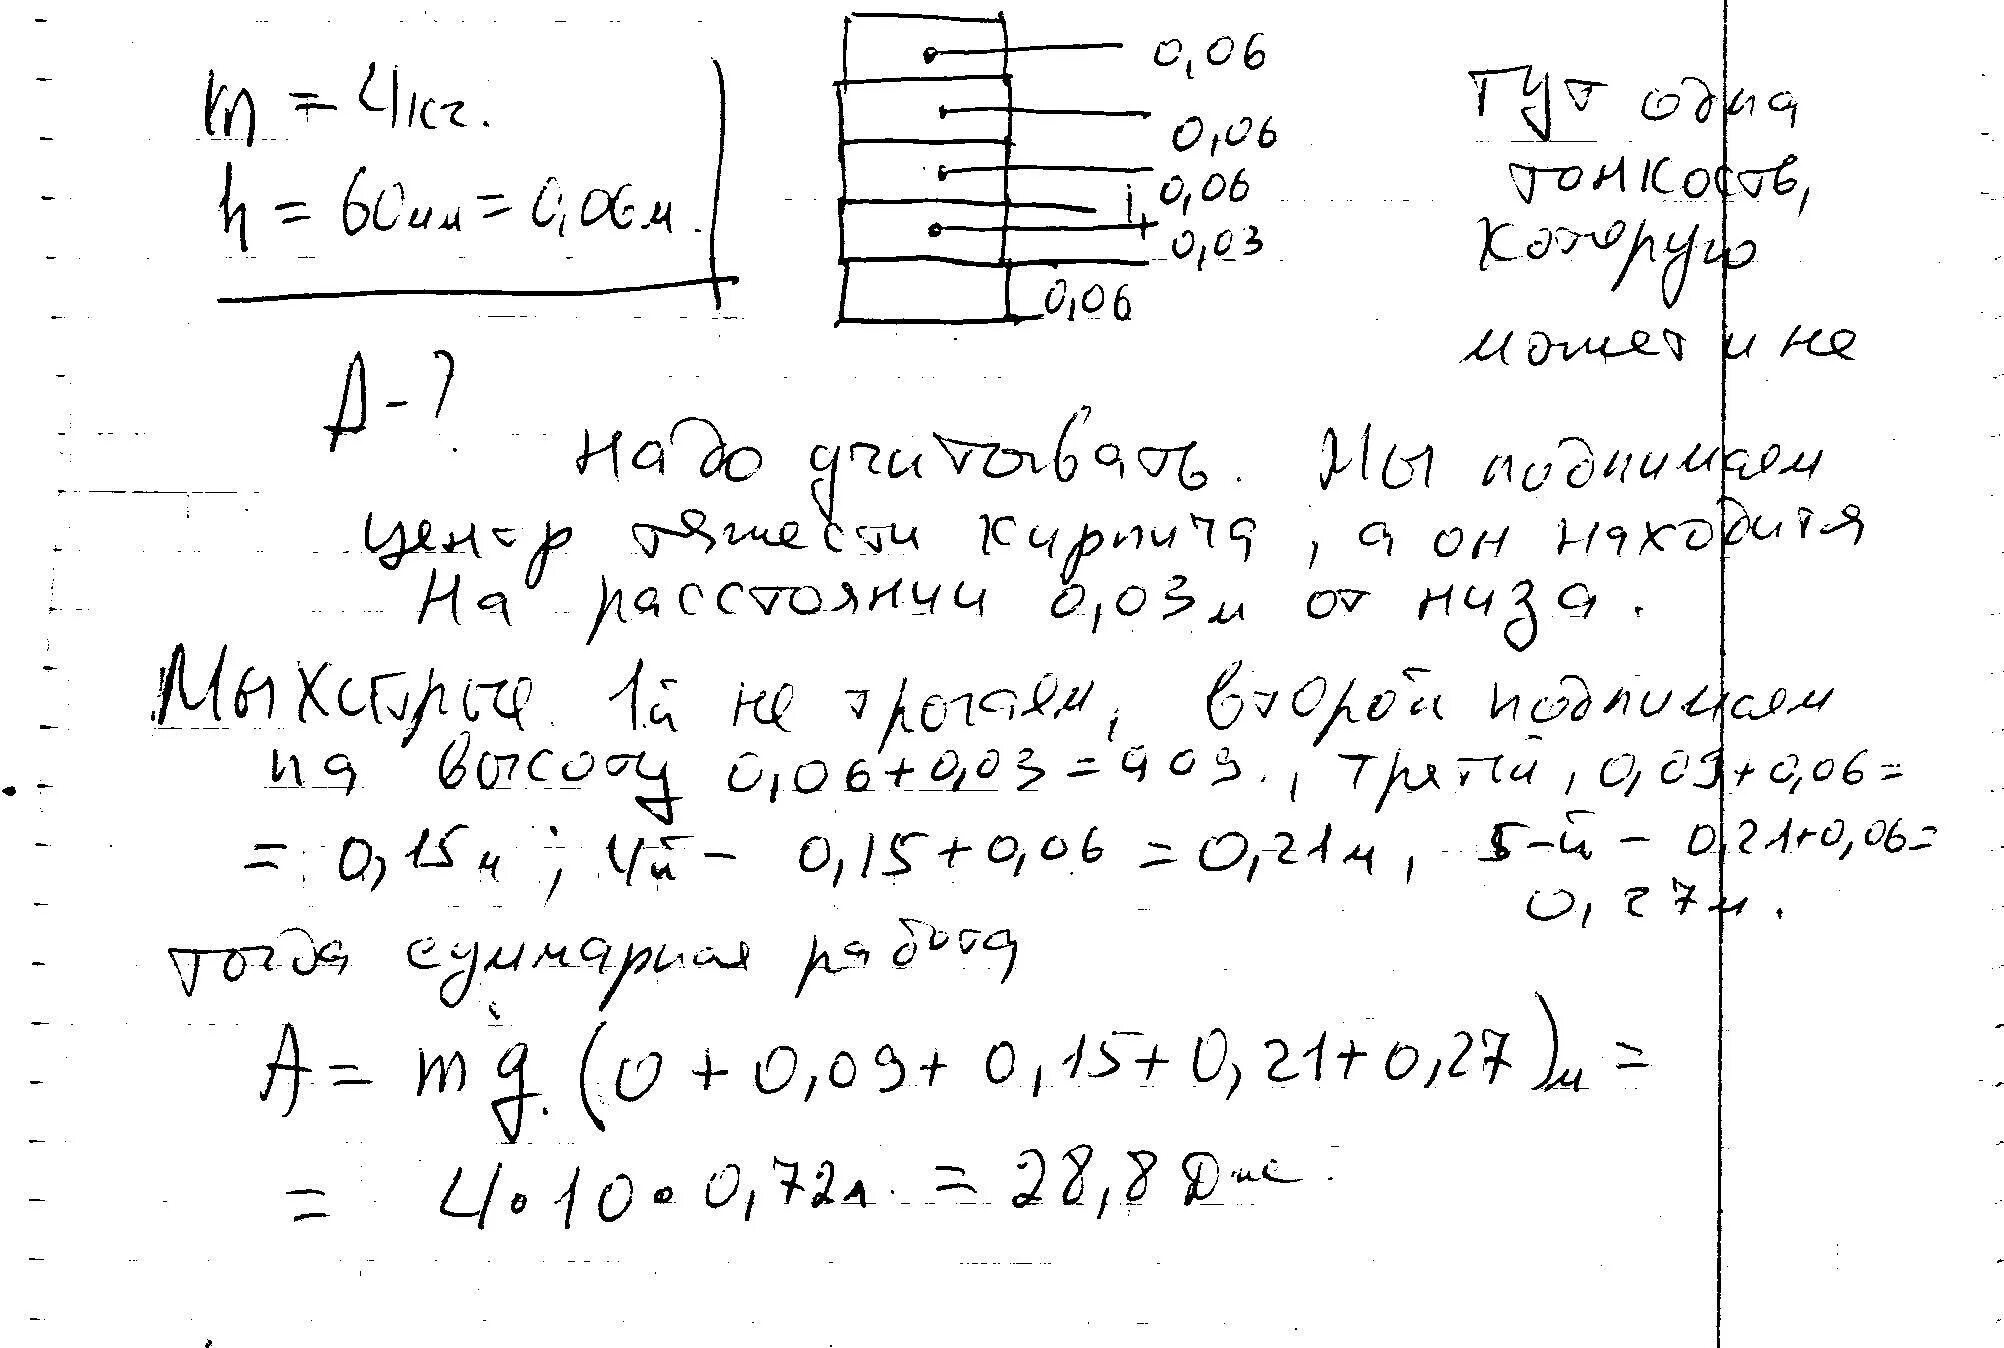 m = 4кг.
h = 60мм = 0,06м.
A - ?
0,06
0,06
0,06
0,03
0,06
Тут одна
тонкость,
которую
может и не
надо учитывать. Мы поднимаем
центр тяжести кирпича, а он находится
на расстоянии 0,03м от низа.
Мы хитрые. 1й не трогаем, второй поднимаем
на высоту 0,06+0,03=0,09., третий, 0,09+0,06=
= 0,15м; 4й - 0,15+0,06=0,21м, 5-й - 0,21+0,06=
0,27м.
тогда сумарная работа
A = mg.(0+0,09+0,15+0,21+0,27)м =
= 4•10•0,72м. = 28,8 Дж.